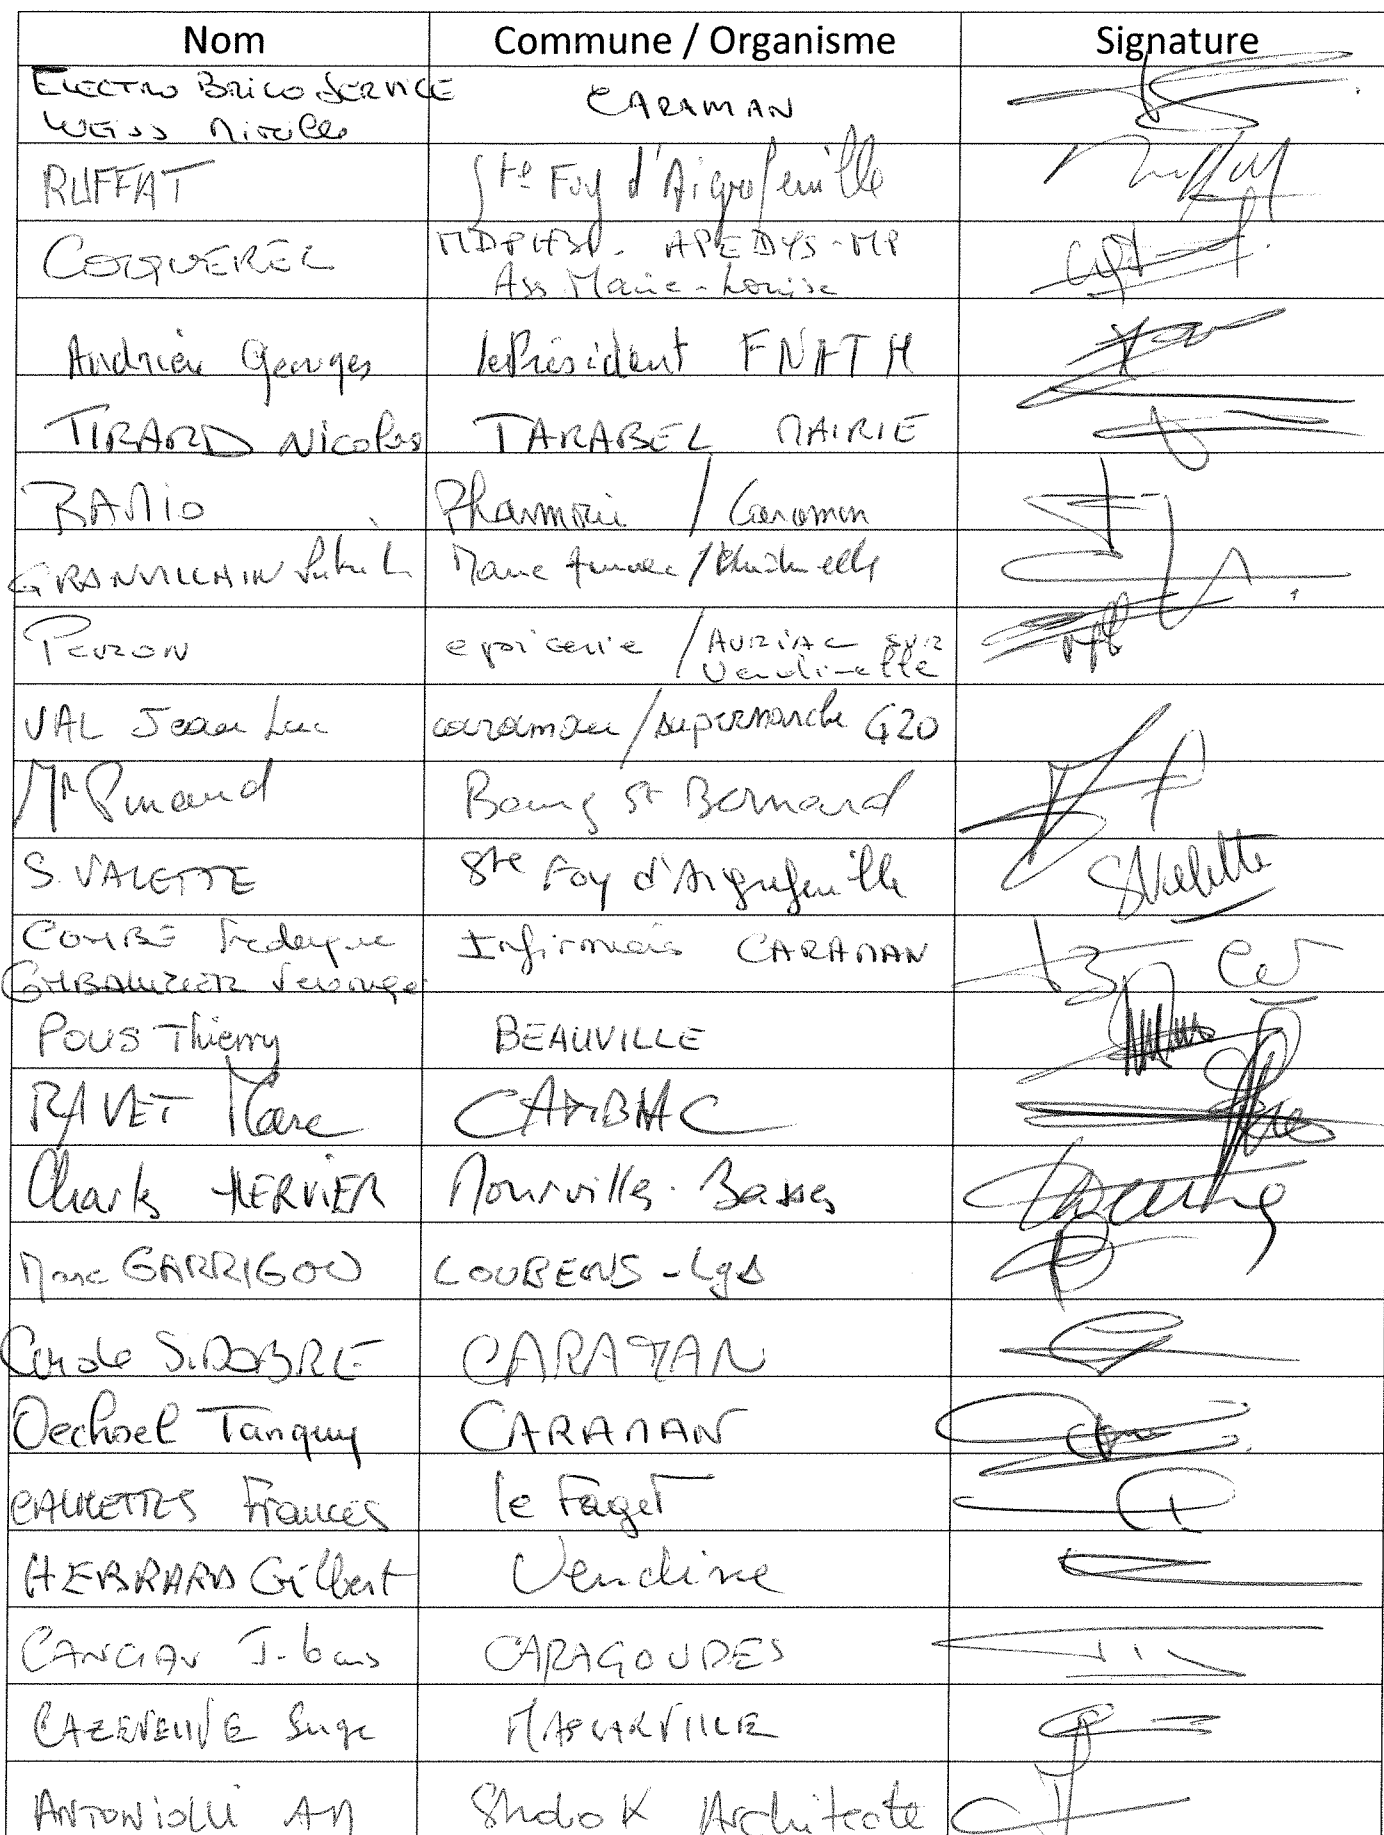 Nom Commune / Organisme Signature
ELECTRO BRICO SERVICE
WEISS Mireille CARAMAN
RUFFAT Ste Foy d'Aigrefeuille
COQUEREL MDPH31. APEDYS-MP
Ass Marie-Louise
Andrieu Georges le Président FNATH
TIRARD Nicolas TARABEL MAIRIE
RAMIO Pharmacie / Caraman
GRANVILLAIN Maire
PERRON epicerie / AURIAC SUR
Vendinelle
VAL Jean Luc caraman / supermarche G20
Mr Pinaud Bourg St Bernard
S. VALETTE Ste Foy d'Aigrefeuille
SValette
COMBE Frederique Infirmieres CARAMAN
POUS Thierry BEAUVILLE
RAVET Marc CAMBIAC
Charles HERVIER Mourvilles-Basses
Marc GARRIGOU LOUBENS-Lgs
Carole SIDOBRE CARAMAN
Oechsel Tanguy CARAMAN
CAUSSETTES Frances le Faget
HEBRARD Gilbert Vendine
CARAGOUDES
CAZENEUVE Serge MASCARVILLE
ANTONIOLLI AM Studio K Architecte